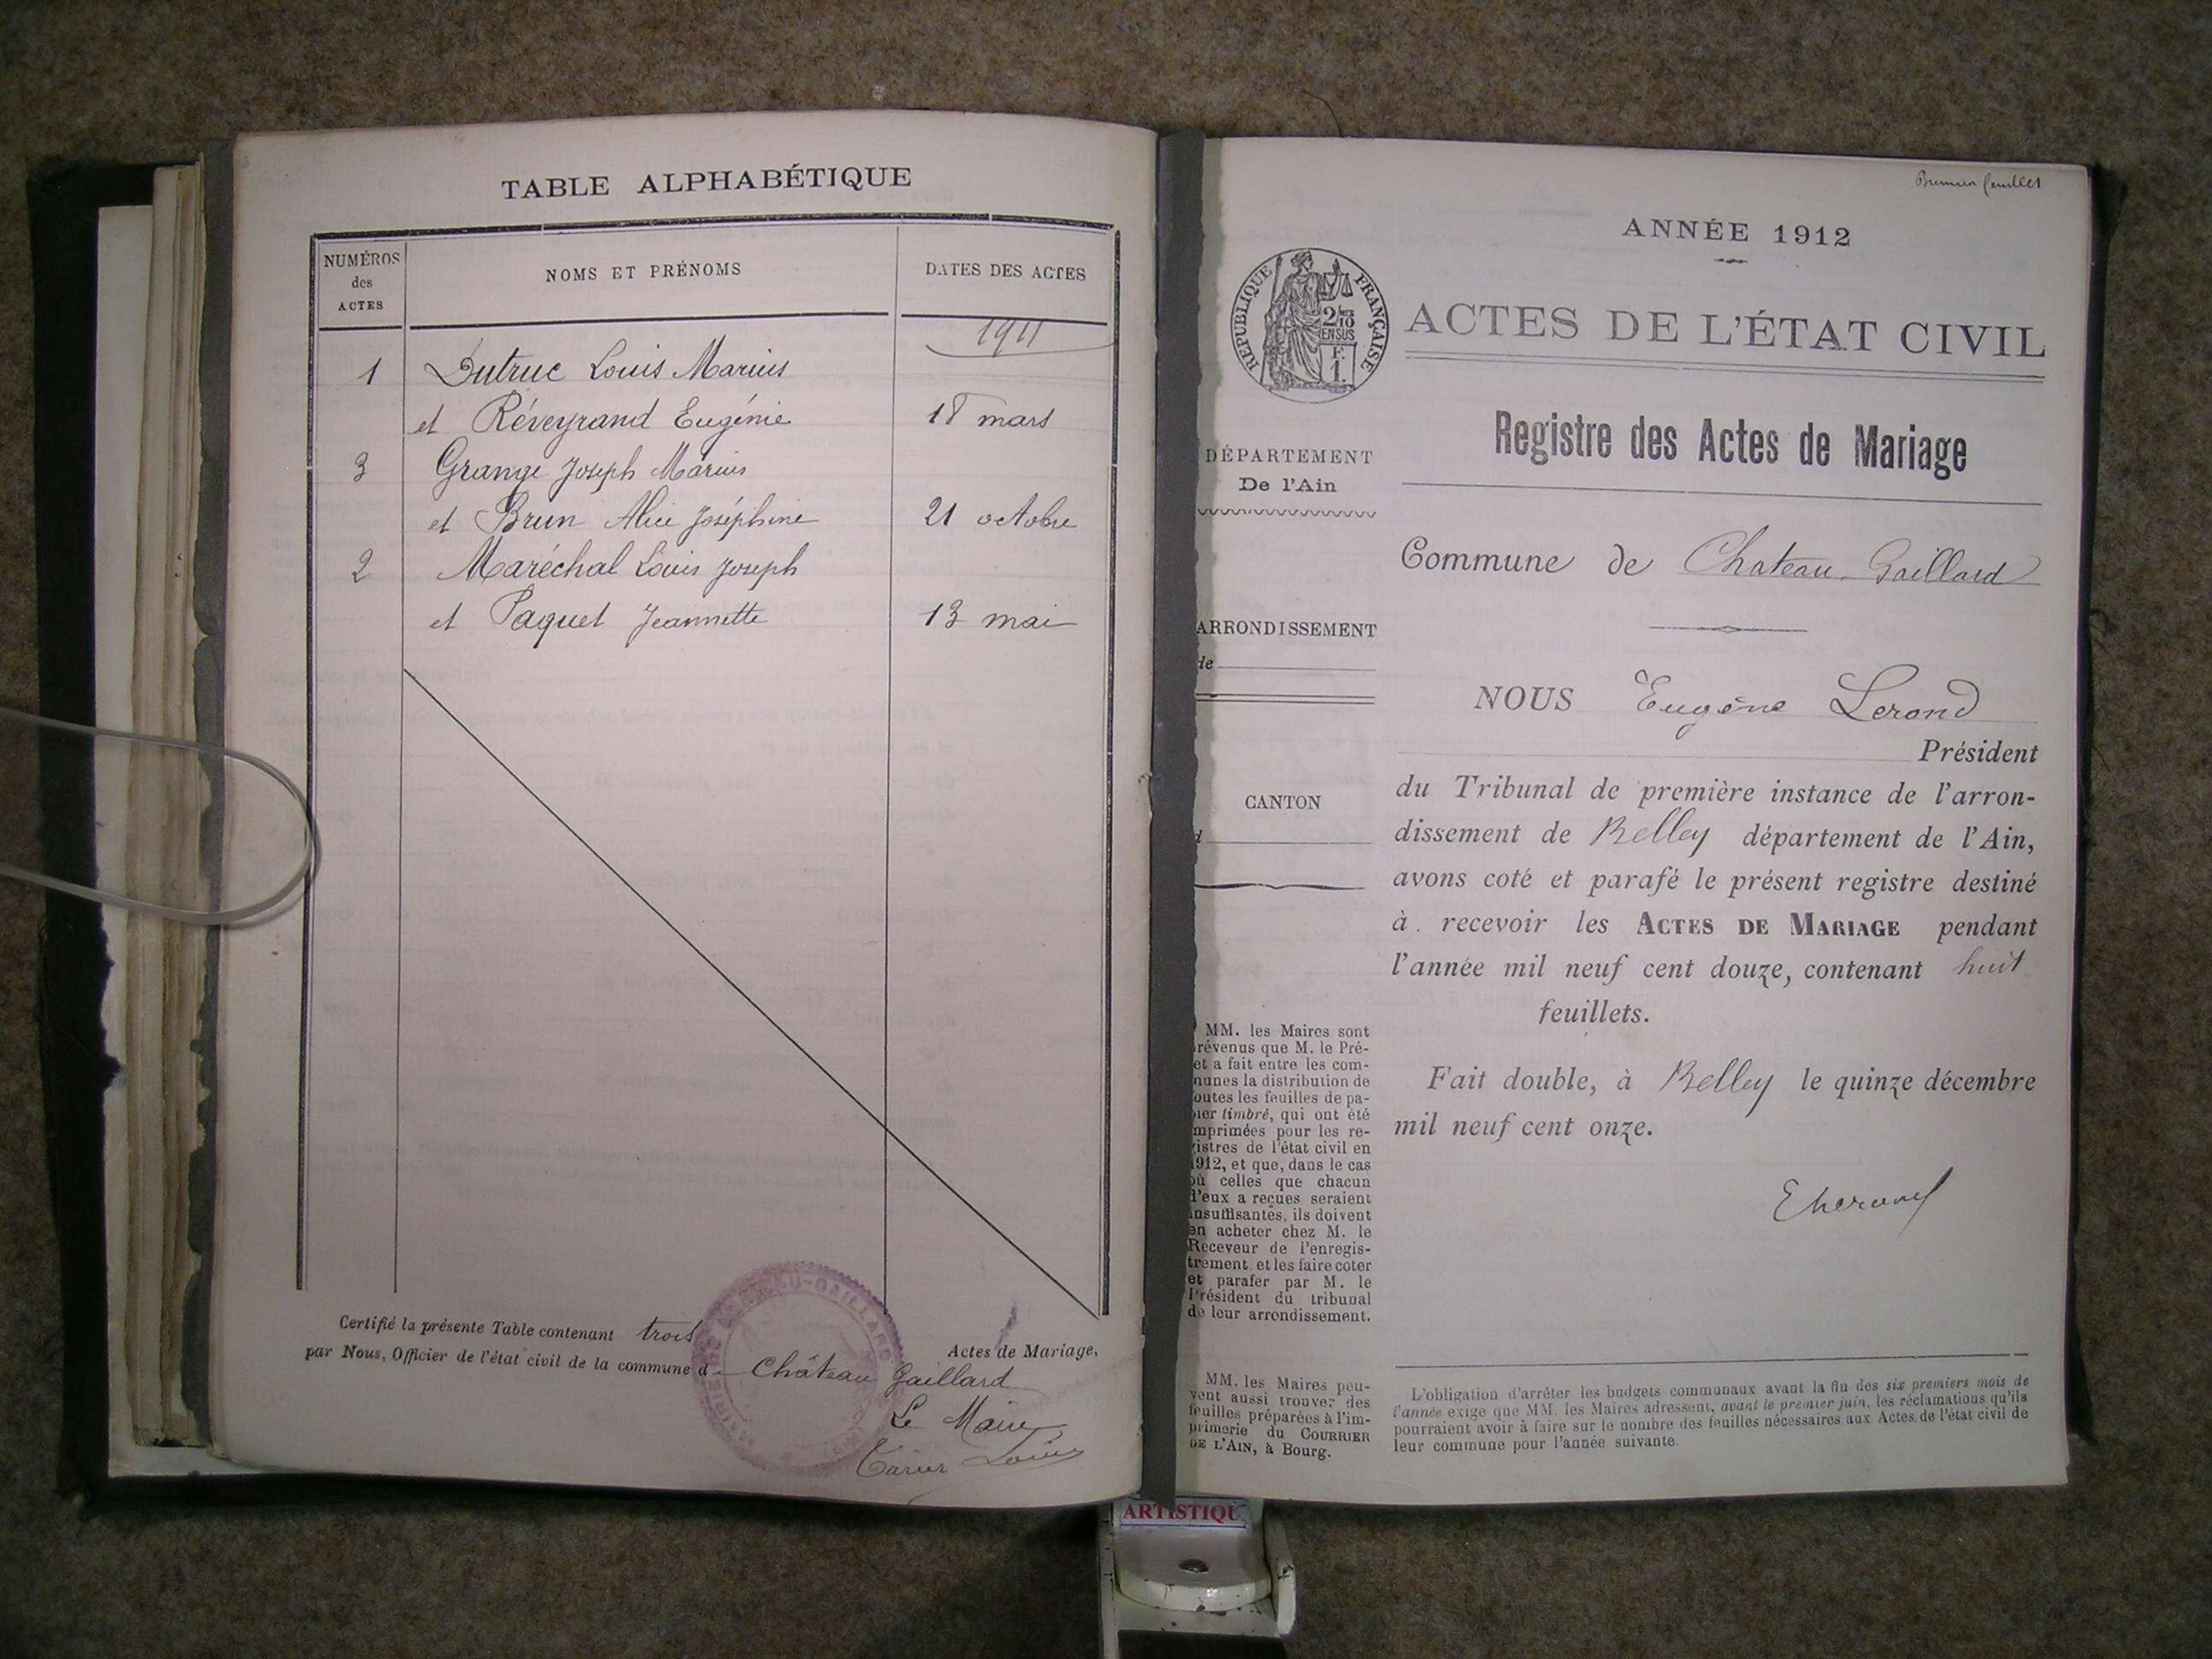 TABLE ALPHABÉTIQUE
NUMÉROS des ACTES
NOMS ET PRÉNOMS
DATES DES ACTES
1911
1 Dutruc Louis Marius
et Réveyrand Eugénie 18 mars
3 Grange Joseph Marius
et Brun Alice Joséphine 21 octobre
2 Maréchal Louis Joseph
et Paquet Jeannette 13 mai
Certifié la présente Table contenant trois
Actes de Mariage,
par Nous, Officier de l'état civil de la commune d Château Gaillard
Le Maire
Louis
Premier feuillet
ANNÉE 1912
RÉPUBLIQUE FRANÇAISE
2/10 EN SUS
F. 1.
ACTES DE L'ÉTAT CIVIL
Registre des Actes de Mariage
DÉPARTEMENT
De l'Ain
Commune de Chateau-Gaillard
ARRONDISSEMENT
de
CANTON
d
NOUS Eugène Lerond
Président
du Tribunal de première instance de l'arron-
dissement de Belley département de l'Ain,
avons coté et parafé le présent registre destiné
à recevoir les ACTES DE MARIAGE pendant
l'année mil neuf cent douze, contenant huit
feuillets.
Fait double, à Belley le quinze décembre
mil neuf cent onze.
MM. les Maires sont
révenus que M. le Pré-
et a fait entre les com-
nunes la distribution de
outes les feuilles de pa-
ier timbré, qui ont été
mprimées pour les re-
istres de l'état civil en
1912, et que, dans le cas
où celles que chacun
d'eux a reçues seraient
insuffisantes, ils doivent
en acheter chez M. le
Receveur de l'enregis-
trement et les faire coter
et parafer par M. le
Président du tribunal
de leur arrondissement.
MM. les Maires peu-
vent aussi trouver des
feuilles préparées à l'im-
primerie du COURRIER
DE L'AIN, à Bourg.
L'obligation d'arrêter les budgets communaux avant la fin des six premiers mois de
l'année exige que MM. les Maires adressent, avant le premier juin, les réclamations qu'ils
pourraient avoir à faire sur le nombre des feuilles nécessaires aux Actes de l'état civil de
leur commune pour l'année suivante.
ARTISTIQU